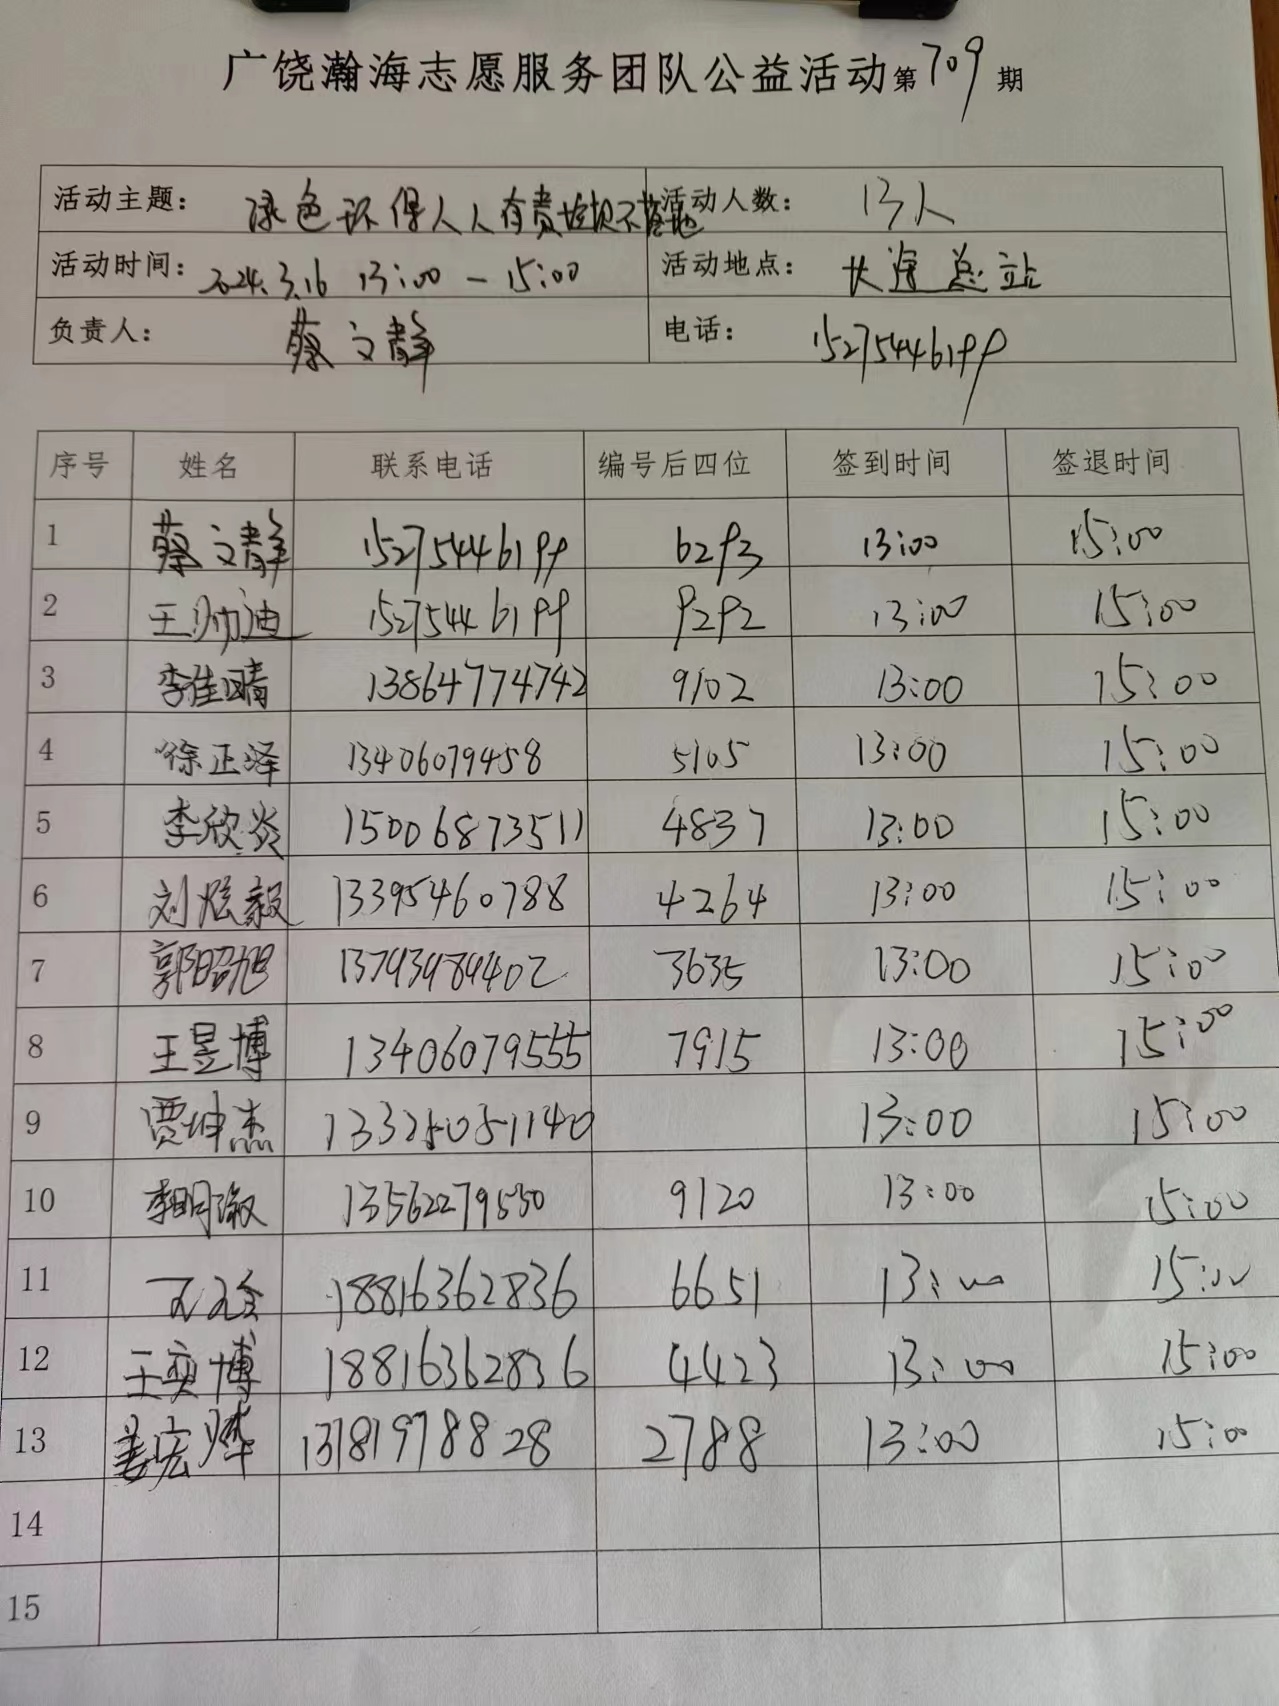 广饶瀚海志愿服务团队公益活动第709期
活动主题： 绿色环保人人有责垃圾不落地 活动人数： 13人
活动时间： 2024.3.16 13:00－15:00 活动地点： 大海总站
负责人： 蔡文静 电话： 15275446199
序号 姓名 联系电话 编号后四位 签到时间 签退时间
1 蔡文静 15275446199 6293 13:00 15:00
2 王帅迪 15275446199 9292 13:00 15:00
3 李佳晴 13864774742 9102 13:00 15:00
4 徐正泽 13406079458 5105 13:00 15:00
5 李欣炎 15006873511 4837 13:00 15:00
6 刘炫毅 13395460788 4264 13:00 15:00
7 郭昭旭 13793989402 3635 13:00 15:00
8 王昱博 13406079555 7915 13:00 15:00
9 贾坤杰 13:00 15:00
10 李明淑 13562279550 9120 13:00 15:00
11 18816362836 6651 13:00 15:00
12 王奕博 18816362836 4423 13:00 15:00
13 姜宏烨 13181978828 2788 13:00 15:00
14
15